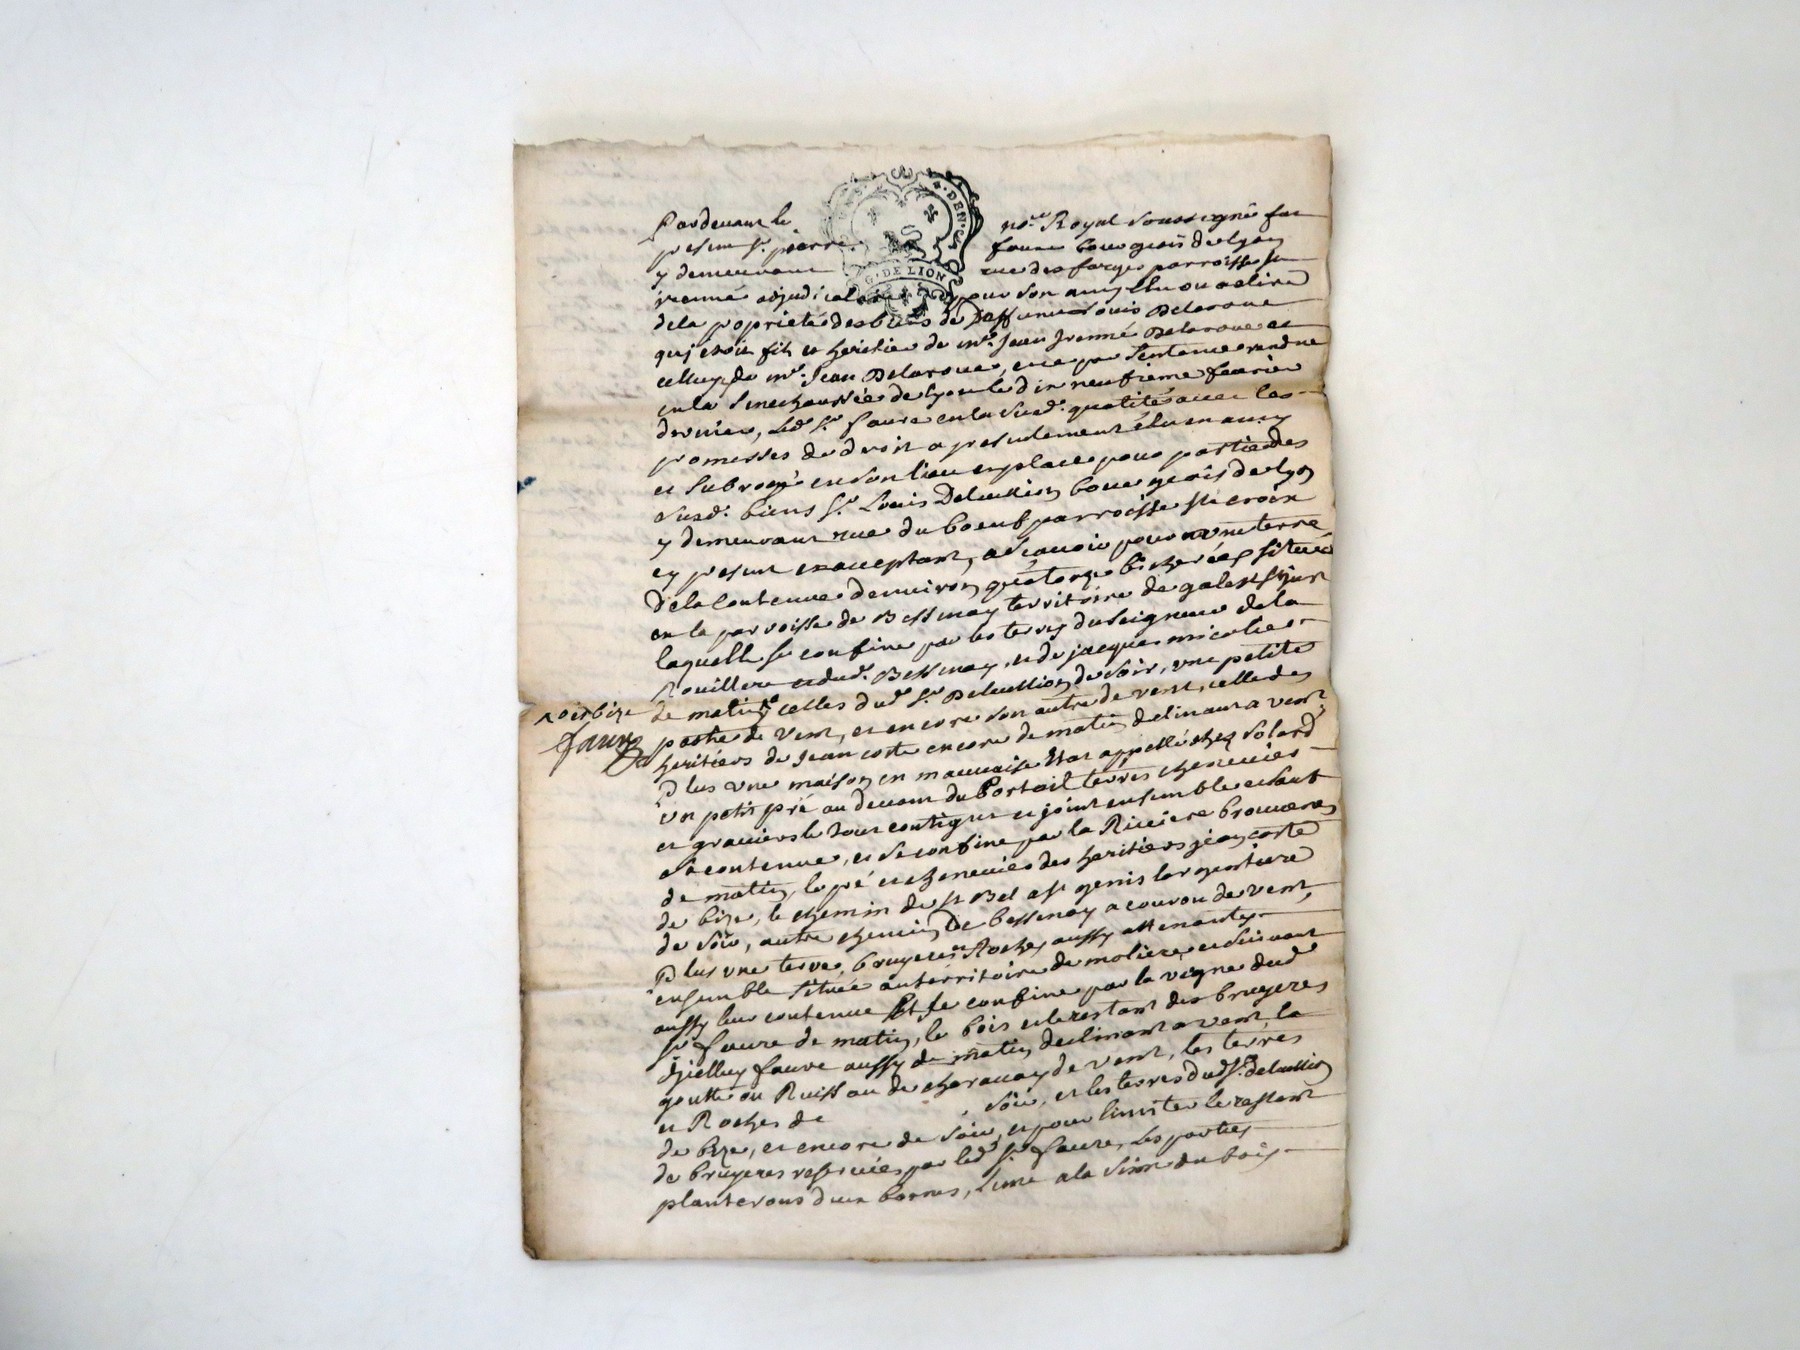 G. DE LION
Pardevant le no.re Royal soussigné fut
present Sr. pierre faure bourgeois de lyon
y demeurant rue des farges parroisse st
irenné adjudicataire pour son amy élu ou a elire
de la proprieté des biens de deffunt Louis Delaroue
qui étoit fils et heritier de mr. Jean Irenné Delaroue et
celluy de mr. Jean Delaroue, et ce par sentence rendue
en la Senechaussée de lyon le dix neufieme fevrier
dernier, Led. Sr. faure en la Susd. qualité avec les
promesses de droit a presentement élu en amy
et subrogé en son lieu et place pour partie des
susd. biens Sr. Louis Delaction bourgeois de lyon
y demeurant rue du boeuf parroisse ste croix
cy present et acceptant, a sçavoir pour une terre
de la contenue d'environ quatorze bicherées située
en la parroisse de Bessenay territoire de
laquelle se confine par les terres du seigneur de la
Rouillere et dud. Bessenay, et de jacques
noir et bize
faure
de matin, celles dud. Sr. Delaction de soir, une petite
partie de vent, et encore son autre de vent, celle des
heritiers de jean coste encore de matin declinant a vent,
Plus une maison en mauvaise Etat appellé chez Solard
un petit pré au devant du Portail terres cheneviers
et graviers le tout contigus et joint ensemble et sauf
sa contenue, et se confine par la Riviere brevenne
de matin, le pré et cheneviers des heritiers jean coste
de bize, le chemin de st Bel a st genis largentiere
de soir, autre chemin de bessenay a couron de vent,
Plus une terre, bruyeres et Roches aussy attenantes
ensemble située au territoire de moliere, et suivant
aussy leur contenue et se confine par la vigne dud
Sr faure de matin, le bois et le restant des bruyeres
d'jcelluy faure aussy de matin declinant a vent, la
goutte ou Ruisseau de charavay de vent, les terres
et Roches de soir, et les terres dud Sr. delaction
de bize, et encore de soir, et pour limiter le restant
de bruyeres reservées par led Sr. faure, Les parties
planteront deux bornes, L'une a la Sime du bois